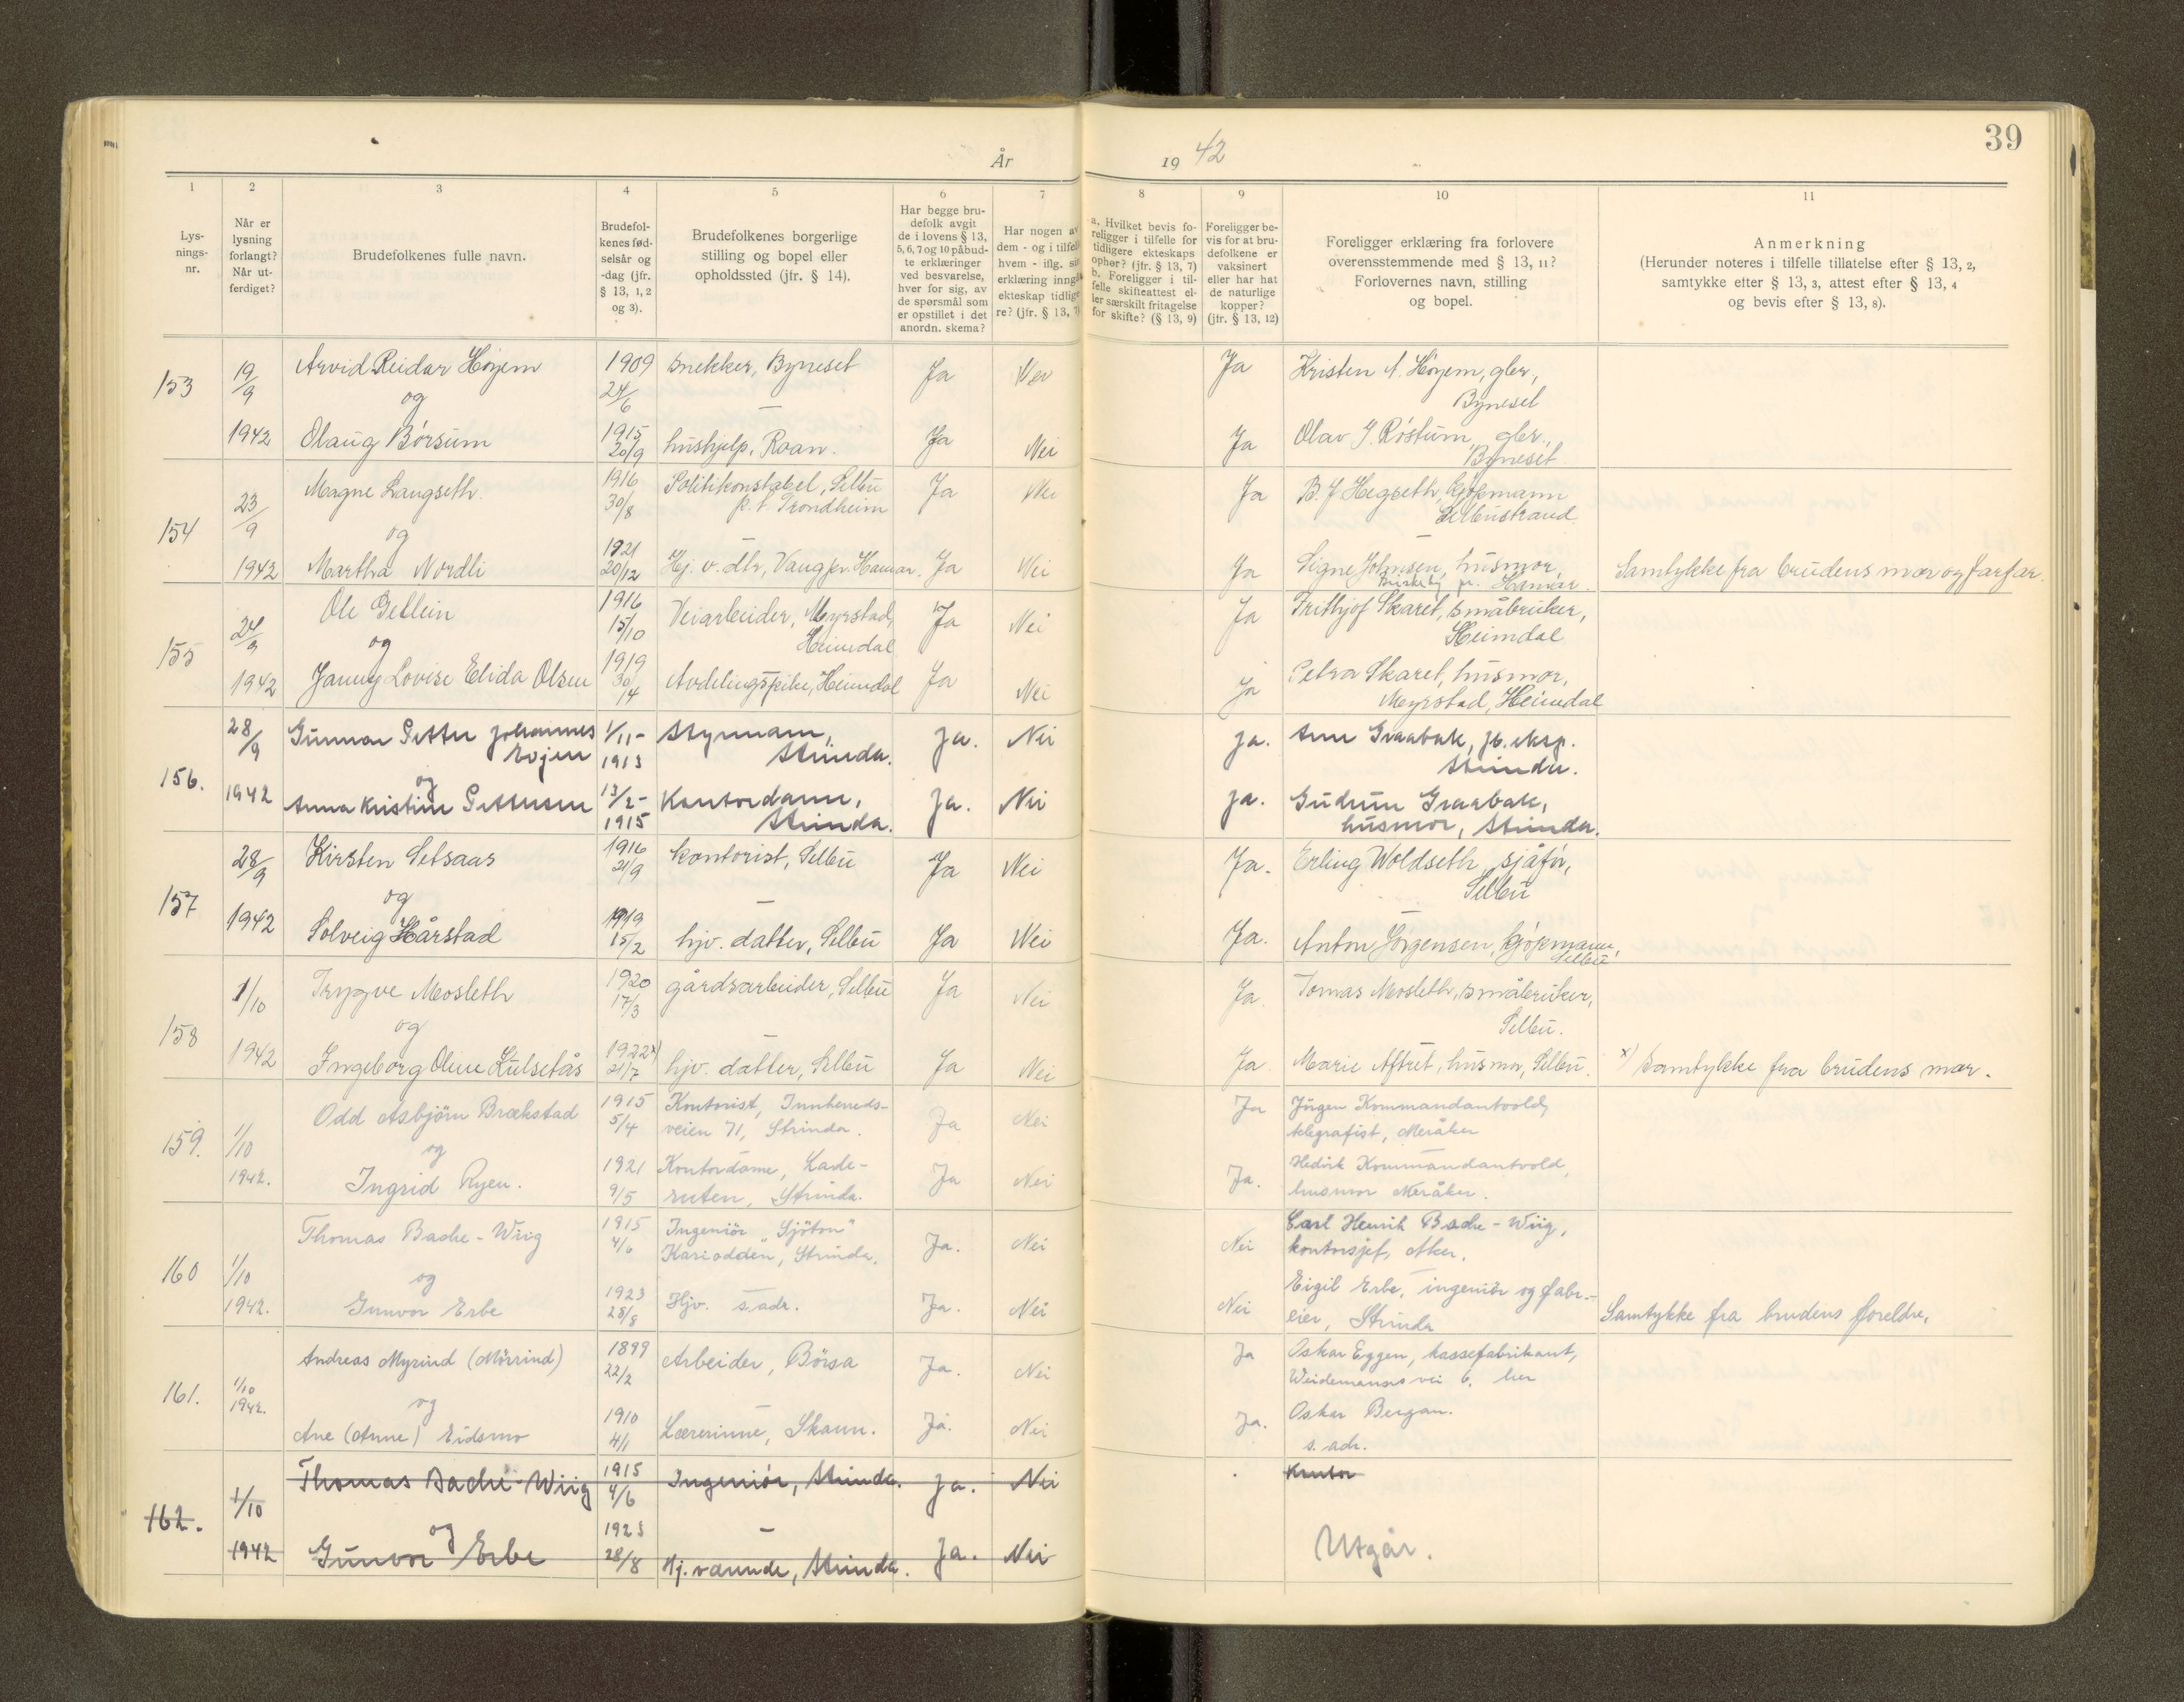 39
År 1942
1
2
3
4
5
6
7
8
9
10
11
Lys-
nings-
nr.
Når er
lysning
forlangt?
Når ut-
ferdiget?
Brudefolkenes fulle navn.
Brudefol-
kenes fød-
selsår og
-dag (jfr.
§ 13, 1, 2
og 3).
Brudefolkenes borgerlige
stilling og bopel eller
opholdssted (jfr. § 14).
Har begge bru-
defolk avgit
de i lovens § 13,
5, 6, 7 og 10 påbud-
te erklæringer
ved besvarelse,
hver for sig, av
de spørsmål som
er opstillet i det
anordn. skema?
Har nogen av
dem - og i tilfelle
hvem - iflg. sin
erklæring inngått
ekteskap tidlige-
re? (jfr. § 13, 7)
a. Hvilket bevis fo-
religger i tilfelle for
tidligere ekteskaps
ophør? (jfr. § 13, 7)
b. Foreligger i til-
felle skifteattest el-
ler særskilt fritagelse
for skifte? (§ 13, 9)
Foreligger be-
vis for at bru-
defolkene er
vaksinert
eller har hat
de naturlige
kopper?
(jfr. § 13, 12)
Foreligger erklæring fra forlovere
overensstemmende med § 13, 11?
Forlovernes navn, stilling
og bopel.
Anmerkning
(Herunder noteres i tilfelle tillatelse efter § 13, 2,
samtykke efter § 13, 3, attest efter § 13, 4
og bevis efter § 13, 8).
153 19/9 1942
Arvid Reidar Höyem 1909 24/6 snekker, Byneset Ja Nei Ja Kristen A. Höyem, gbr.,
Byneset
og
Olaug Börsum 1915 20/9 hushjelp, Roan. Ja Nei Ja Olav J. Röstum, gbr.,
Byneset
154 23/9 1942
Magne Langseth 1916 30/8 Politikonstabel, Selbu Ja Nei Ja B. J. Hegseth, kjöpmann
p. t. Trondheim Selbustrand
og
Martha Nordli 1921 20/12 Hj. v. dtr, Vang pr. Hamar. Ja Nei Ja Signe Johnsen, husmor, Samtykke fra brudens mor og farfar.
Briskeby pr. Hamar.
155 24/9 1942
Ole Getlein 1916 15/10 Veiarbeider, Myrstad, Ja Nei Ja Frithjof Skaret, småbruker,
Heimdal Heimdal
og
Janny Lovise Elida Olsen 1919 30/4 Avdelingspike, Heimdal Ja Nei Ja Petra Skaret, husmor,
Myrstad, Heimdal
156. 28/9 1942
Gunnar Petter Johannes 1/11- Styrmann, Ja. Nei Ja. Arne Graabak, jb. eksp.
Evjen 1913 Strinda. Strinda.
og
Anna Kristine Pettersen 13/2- Kontordame, Ja. Nei Ja. Gudrun Graabak,
1915 Strinda. husmor, Strinda.
157 28/9 1942
Kirsten Setsaas 1916 21/9 kontorist, Selbu Ja Nei Ja. Erling Woldseth, sjåför,
Selbu
og
Solveig Hårstad 1919 15/2 hjv. datter, Selbu Ja Nei Ja. Anton Jörgensen, kjöpmann,
Selbu
158 1/10 1942
Trygve Mosleth 1920 17/3 gårdsarbeider, Selbu Ja Nei Ja. Tomas Mosleth, småbruker,
Selbu.
og
Ingeborg Oline Kulsetås 1922 x) 21/7 hjv. datter, Selbu Ja Nei Ja Marie Aftret, husmor, Selbu. x) Samtykke fra brudens mor.
159. 1/10 1942.
Odd Asbjörn Brækstad 1915 Kontorist, Innherreds- Ja Nei Ja Jörgen Kommandantvold,
5/4 veien 71, Strinda. telegrafist, Meråker
og
Ingrid Ryen. 1921 Kontordame, Lade- Ja Nei Ja. Hedvik Kommandantvold,
9/5 ruten, Strinda. husmor Meråker.
160 1/10 1942.
Thomas Bache-Wiig 1915 Ingeniör "Sjötun" Ja. Nei Nei Carl Henrik Bache-Wiig,
4/6 Kariodden, Strinda. kontorsjef, Aker.
og
Gunvor Erbe 1923 28/8 Hjv. s. adr. Ja. Nei Nei Eigil Erbe, ingeniör og fabr.-
eier, Strinda Samtykke fra brudens foreldre.
161. 1/10 1942.
Andreas Myrind (Mörrind) 1899 22/2 Arbeider, Börsa Ja. Nei Ja Oskar Eggen, kassefabrikant,
Weidemanns vei 6, her
og
Ane (Anne) Eidsmo 1910 4/1 Lærerinne, Skaun. Ja. Nei Ja. Oskar Bergan.
s. adr.
162. 1/10 1942
Thomas Bache-Wiig 1915 4/6 Ingeniör, Strinda. Ja. Nei Kontor
og
Gunvor Erbe 1923 28/8 Hj. værende, Strinda. Ja. Nei Utgår.